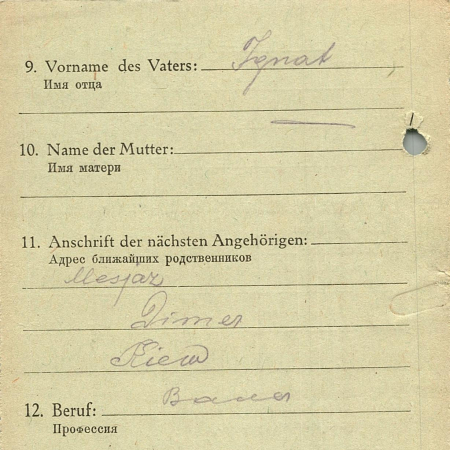 9. Vorname des Vaters: Ignat
Имя отца
10. Name der Mutter:
Имя матери
11. Anschrift der nächsten Angehörigen:
Адрес ближайших родственников
Dimer
Kiew
12. Beruf: Bauer
Профессия